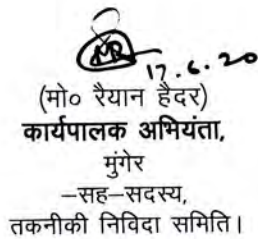 17.6.20
(मो० रैयान हैदर)
कार्यपालक अभियंता,
मुंगेर
–सह–सदस्य,
तकनीकी निविदा समिति।